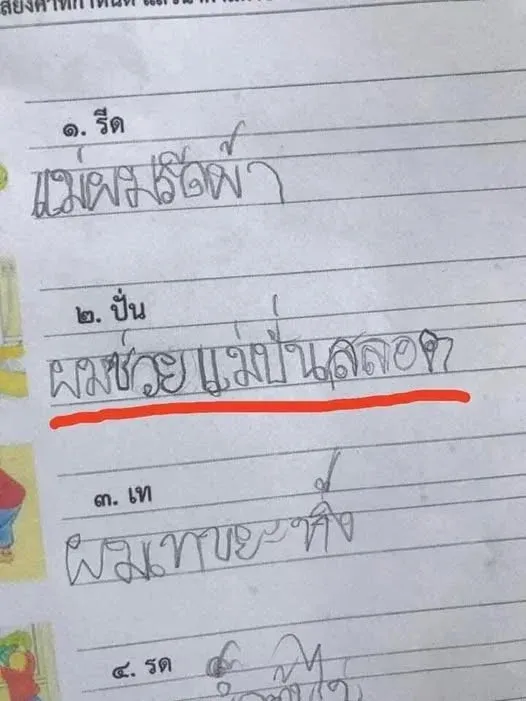 ๑. รีด
แม่ผมรีดผ้า
๒. ปั่น
ผมช่วยแม่ปั่นสลอต
๓. เท
ผมเทขยะทิ้ง
๔. รด